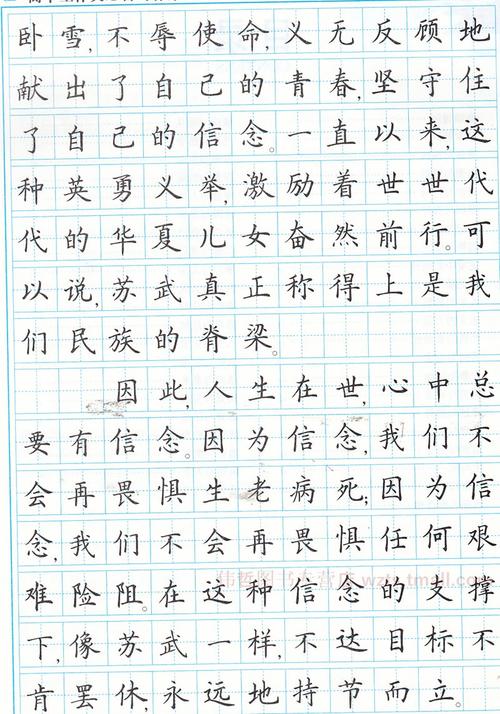 卧雪,不辱使命,义无反顾地
献出了自己的青春,坚守住
了自己的信念。一直以来,这
种英勇义举,激励着世世代
代的华夏儿女奋然前行。可
以说,苏武真正称得上是我
们民族的脊梁。
因此,人生在世,心中总
要有信念。因为信念,我们不
会再畏惧生老病死;因为信
念,我们不会再畏惧任何艰
难险阻。在这种信念的支撑
下,像苏武一样,不达目标不
肯罢休,永远地持节而立。